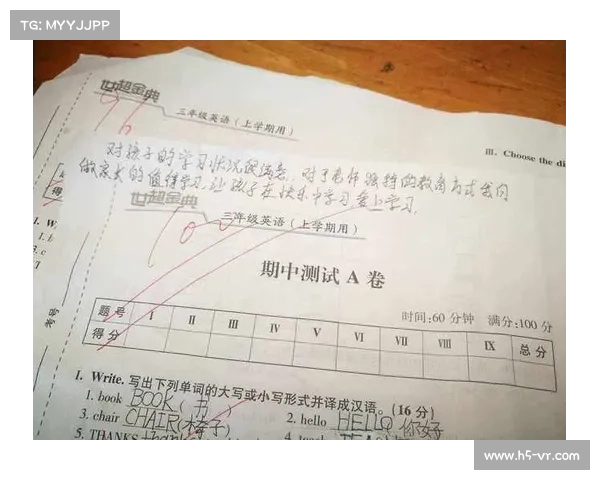 TG: MYYJJPP
世超金典
96
三年级英语(上学期用)
III. Choose the di
对孩子的学习状况很满意。对于老师独特的教育方式我们
做家长的值得学习,让孩子在快乐中学习,爱上学习。
世超金典
100
三年级英语(上学期用)
期中测试 A 卷
时间:60 分钟 满分:100 分
题号 I II III IV V VI VII VIII IX 总分
得分
考号
I. Write. 写出下列单词的大写或小写形式并译成汉语。(16 分)
1. book BOOK (书)
2. hello HELLO 你好
3. chair CHAIR (椅子)
5. THANKS thank
www.h5-vr.com